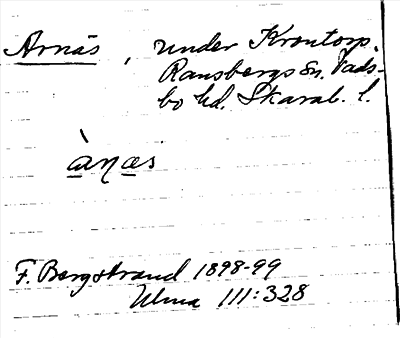 Arnäs, under Krontorp,
Ransbergs Sn, Vads-
bo hd. Skarab. l.
ànæs
F. Bergstrand 1898-99
Ulma 111:328